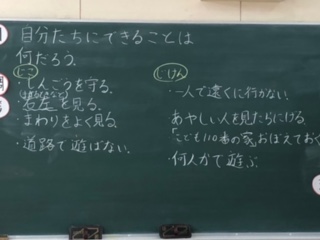 自分たちにできることは
何だろう。
じこ
・しんごうを守る。
・右左を見る。
・まわりをよく見る。
・道路で遊ばない。
じけん
・一人で遠くに行かない。
あやしい人を見たらにげる。
「こども110番の家」おぼえておく
・何人かで遊ぶ